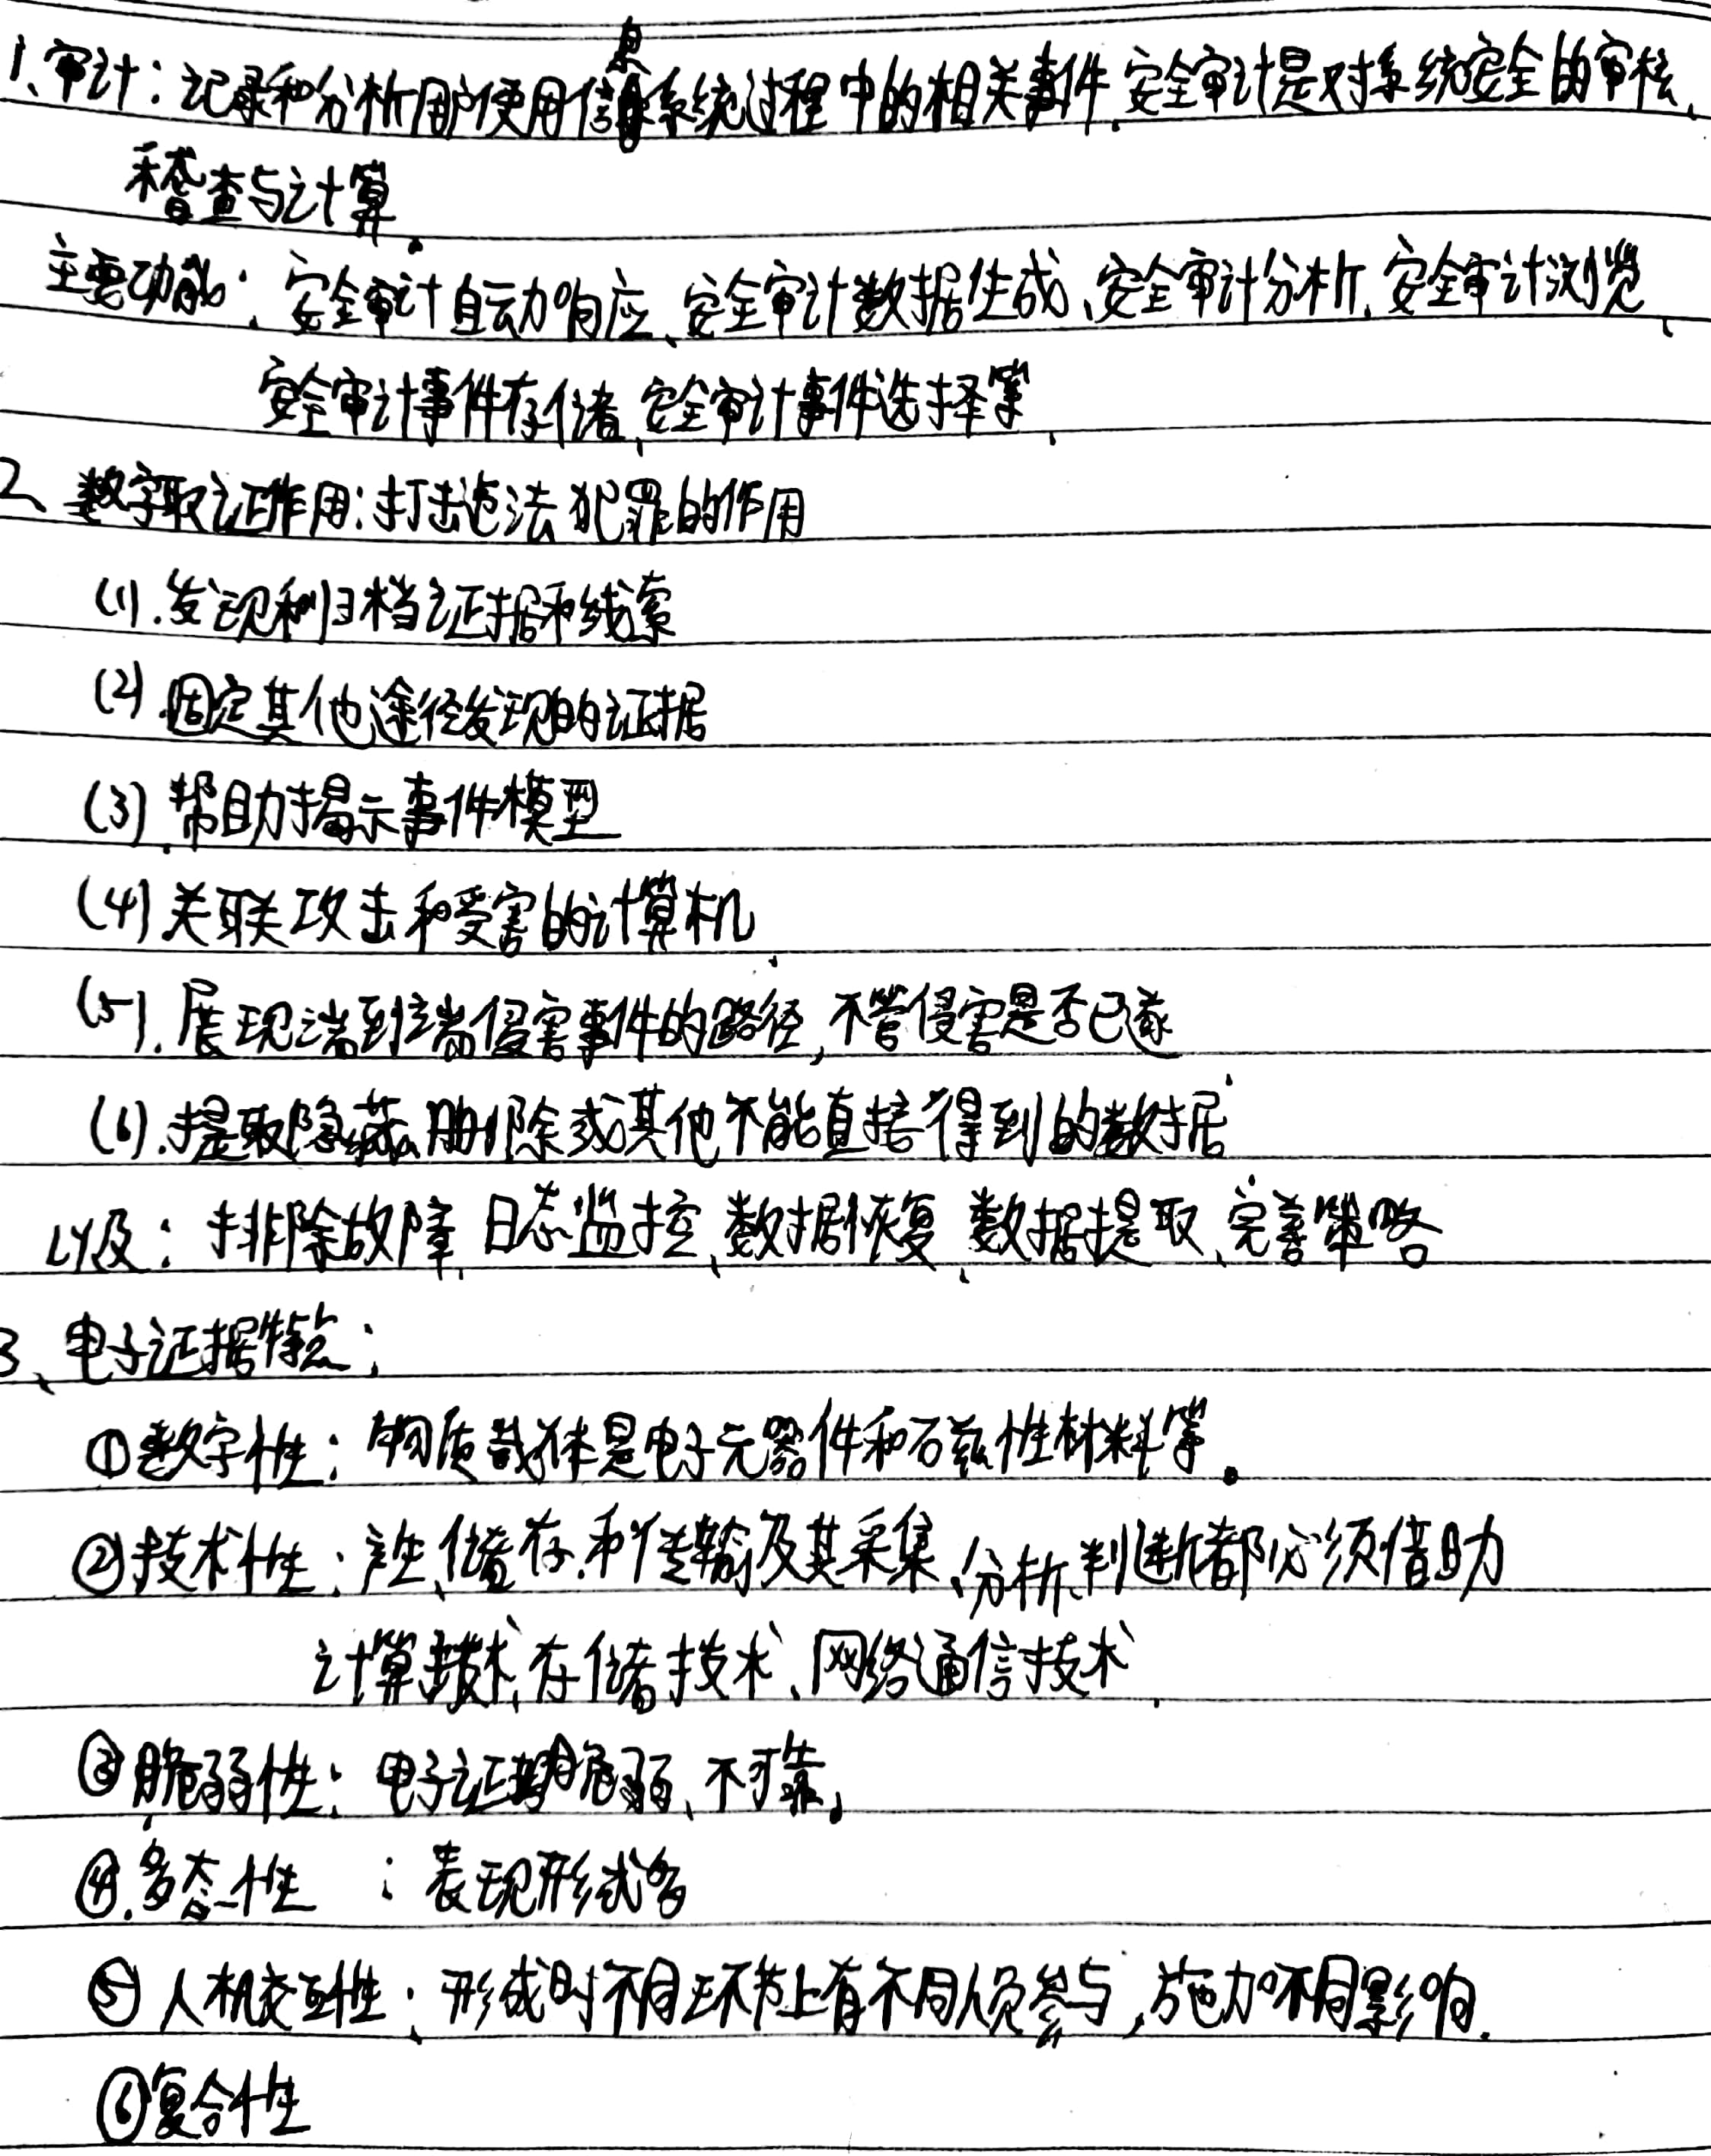 1、审计：记录和分析用户使用信息系统过程中的相关事件.安全审计是对系统安全的审核、
稽查与计算.
主要功能：安全审计自动响应、安全审计数据生成、安全审计分析、安全审计浏览、
安全审计事件存储、安全审计事件选择等、
2、数字取证作用：打击违法犯罪的作用
(1).发现和归档证据和线索
(2).固定其他途径发现的证据
(3).帮助揭示事件模型
(4)关联攻击和受害的计算机、
(5).展现端到端侵害事件的路径,不管侵害是否已遂
(6).提取隐藏、删除或其他不能直接得到的数据
以及：排除故障、日志监控、数据恢复、数据提取、完善策略
3、电子证据特点：
①数字性：物质载体是电子元器件和磁性材料等。
②技术性：产生、储存、和传输及其采集、分析、判断都必须借助
计算技术、存储技术、网络通信技术、
③脆弱性：电子证据脆弱、不可靠。
④.多态性：表现形式多
⑤人机交互性：形成时不同环节上有不同人员参与,施加不同影响.
⑥复合性